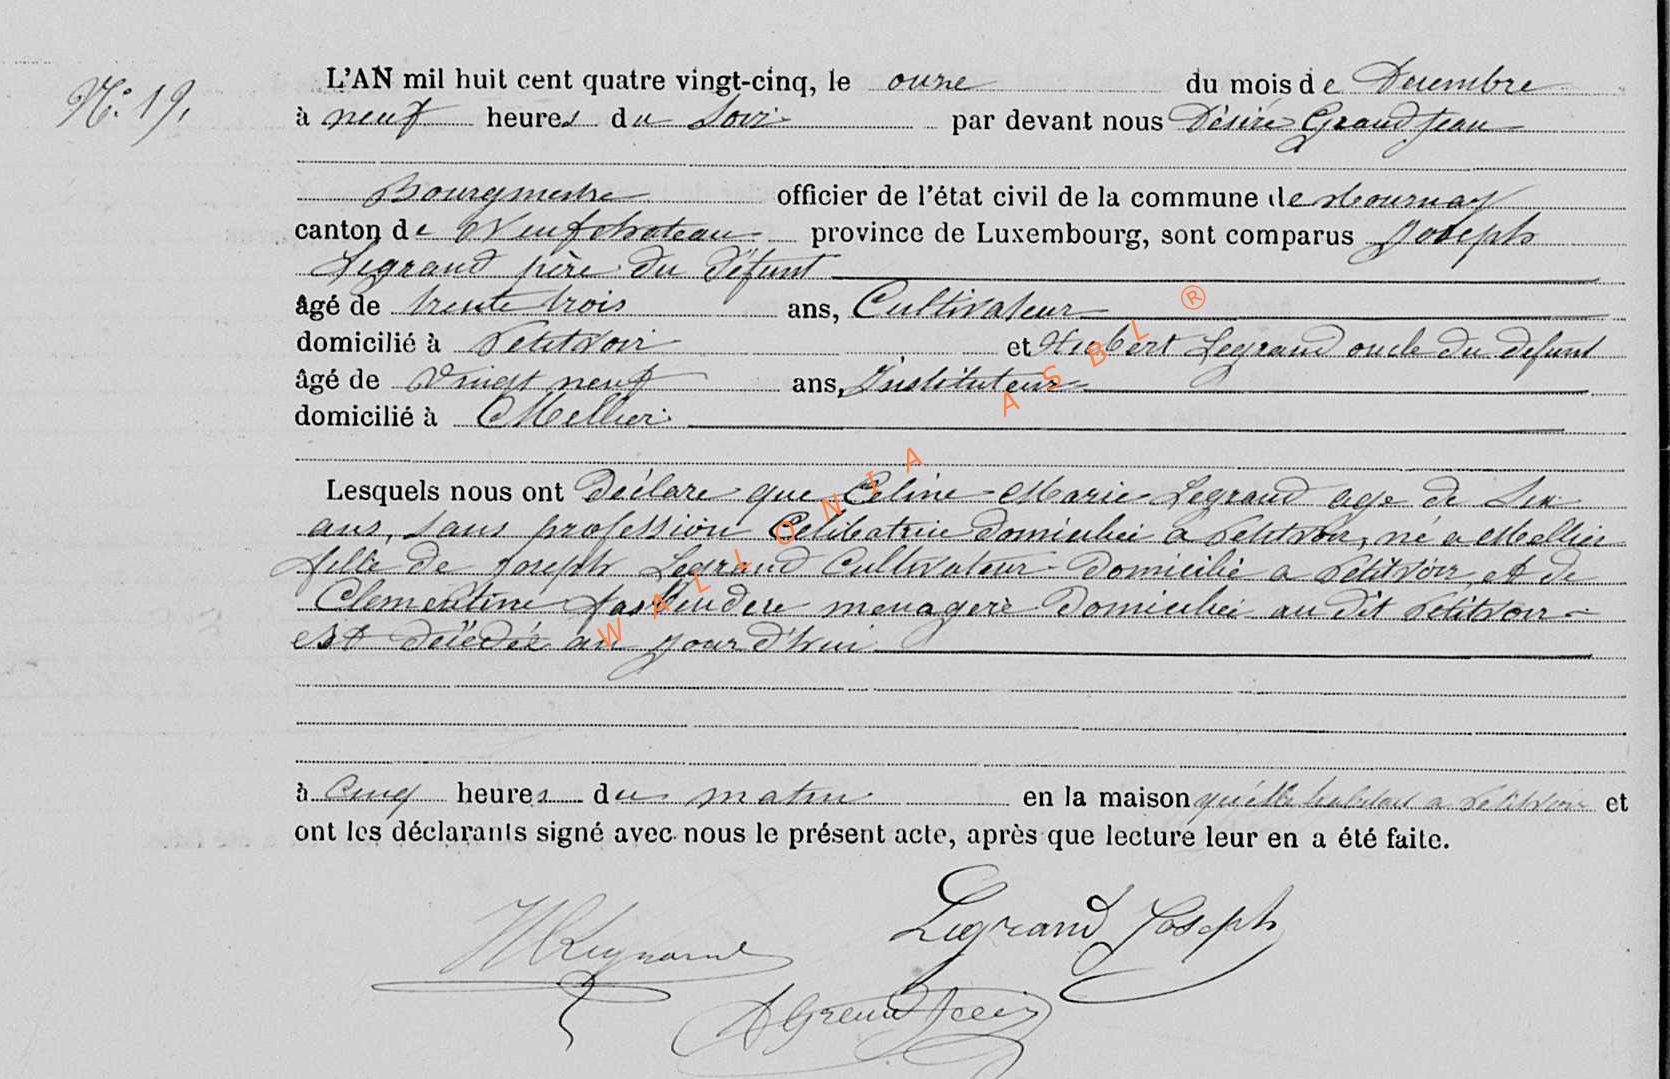 N.° 19,
L'AN mil huit cent quatre vingt-cinq, le onze du mois de Decembre
à neuf heures du Soir par devant nous Désiré Grandjean
Bourgmestre officier de l'état civil de la commune de Tournay
canton de Neufchateau province de Luxembourg, sont comparus Joseph
Legrand père du défunt
âgé de trente trois ans, Cultivateur
domicilié à Petitvoir et Hubert Legrand oncle du defunt
âgé de Vingt neuf ans, Instituteur
domicilié à Mellier
Lesquels nous ont Déclaré que Celine Marie Legrand age de Six
ans, sans profession Celibatrice domiciliée a Petitvoir, né a Mellier
fille de Joseph Legrand Cultivateur domicilié a Petitvoir, et de
Clementine menagère domiciliée au dit Petitvoir
est décédée au jour d'hui
à Cinq heures du matin en la maison qu'elle habitait a Petitvoir et
ont les déclarants signé avec nous le présent acte, après que lecture leur en a été faite.
Legrand Joseph
DGrandjean
WALLONIA ASBL ®